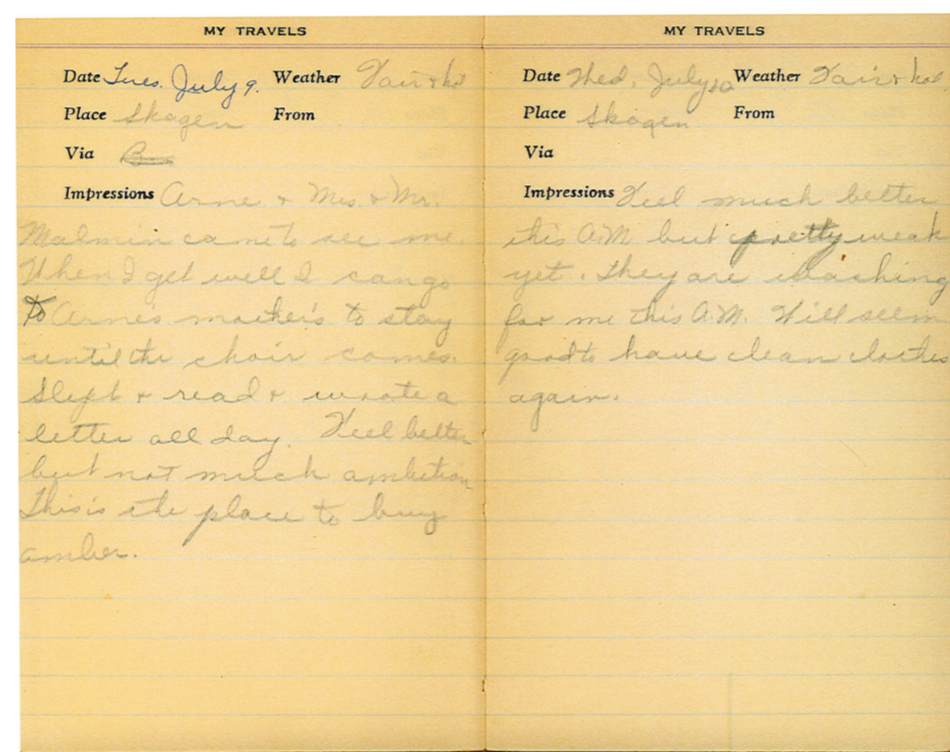 MY TRAVELS
Date Tues. July 9. Weather Fair & hot
Place Skagen From
Via
Impressions Arne & Mrs. & Mr.
Malmin came to see me.
When I get well I can go
to Arne's mother's to stay
until the choir comes.
Slept & read & wrote a
letter all day. Feel better
but not much ambition
This is the place to buy
amber.
MY TRAVELS
Date Wed. July 10 Weather Fair & hot
Place Skagen From
Via
Impressions Feel much better
this A.M. but pretty weak
yet. They are washing
for me this A.M. Will seem
good to have clean clothes
again.